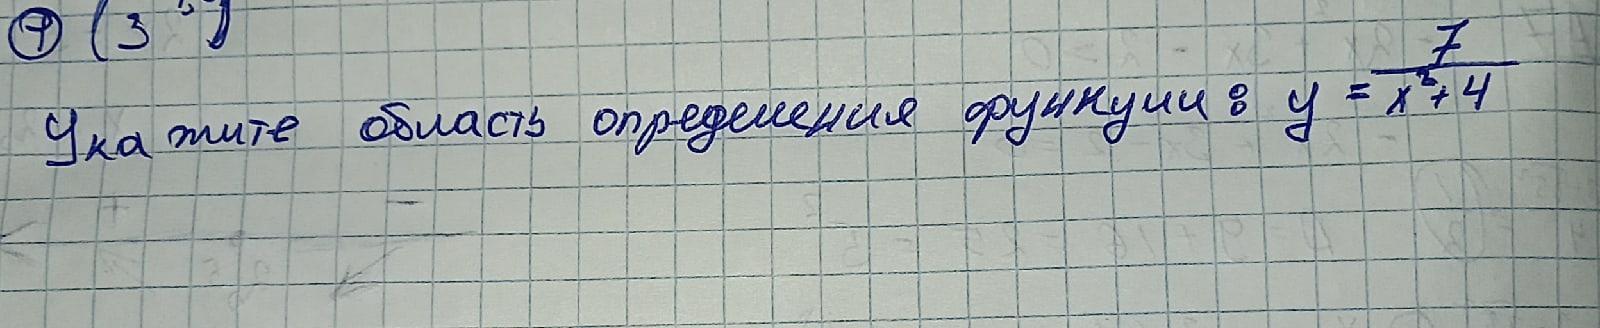 ⑨ (3
Укажите область определения функции: y = 7/(x²+4)